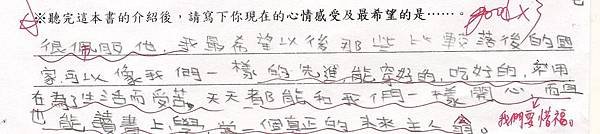 ※聽完這本書的介紹後，請寫下你現在的心情感受及最希望的是……。 good x3
很佩服他，我最希望以後那些比較落後的國
家可以像我們一樣的先進，能穿好的，吃好的，不用
在為了生活而受苦。天天都能和我們一樣開心，而且
也能讀書上學，當一個真正的未來主人翁。 我們要惜福。